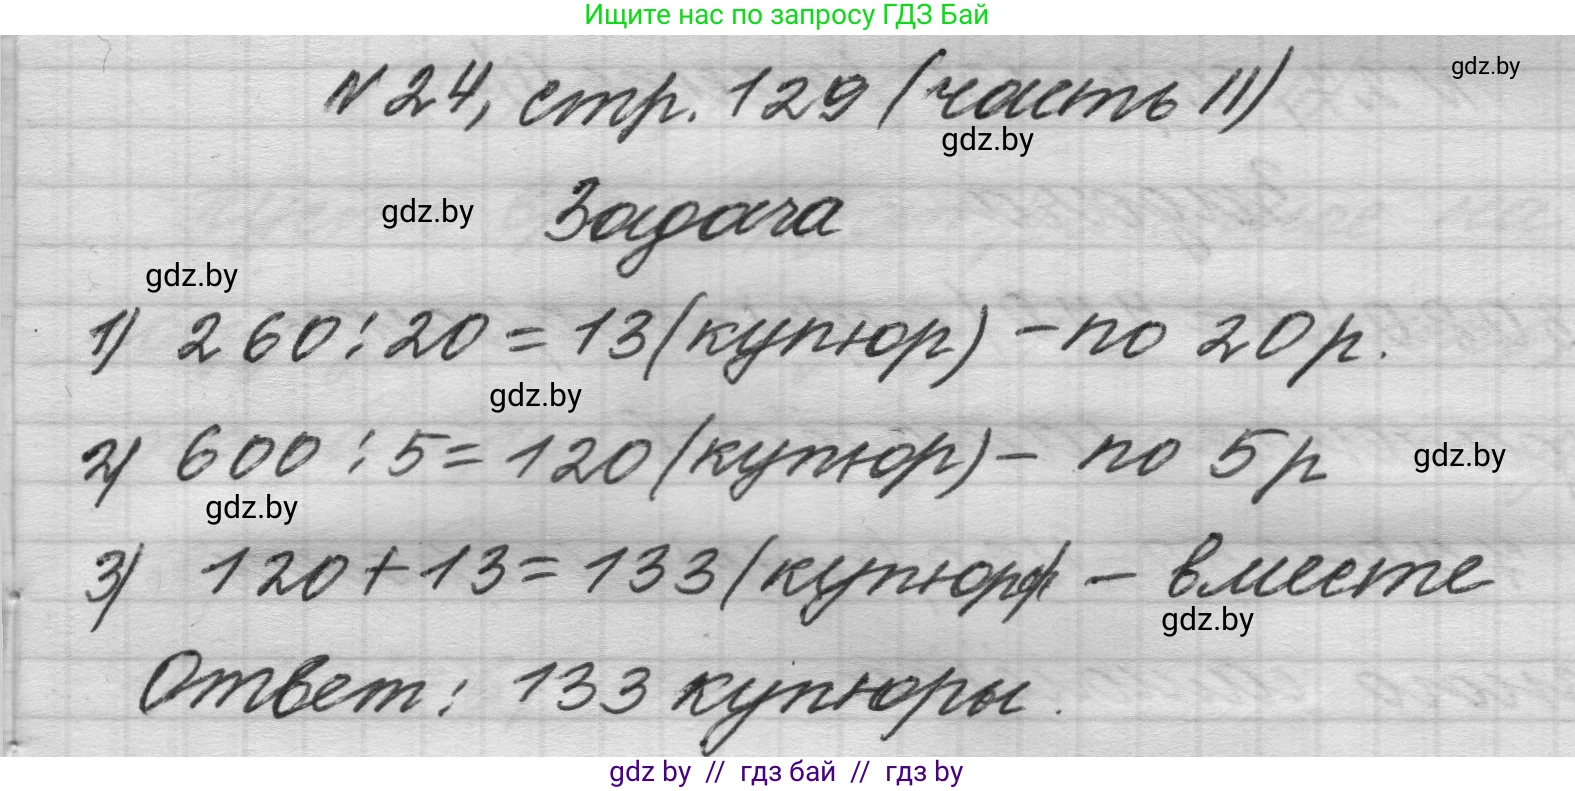 Ищите нас по запросу ГДЗ Бай
gdz.by
№ 24, стр. 129 (часть II)
gdz.by
gdz.by
Задача
gdz.by
1) 260 : 20 = 13 (купюр) - по 20 р.
gdz.by
2) 600 : 5 = 120 (купюр) - по 5 р
gdz.by
gdz.by
3) 120 + 13 = 133 (купюр) - вместе
gdz.by
Ответ: 133 купюры.
gdz by // гдз бай // гдз by